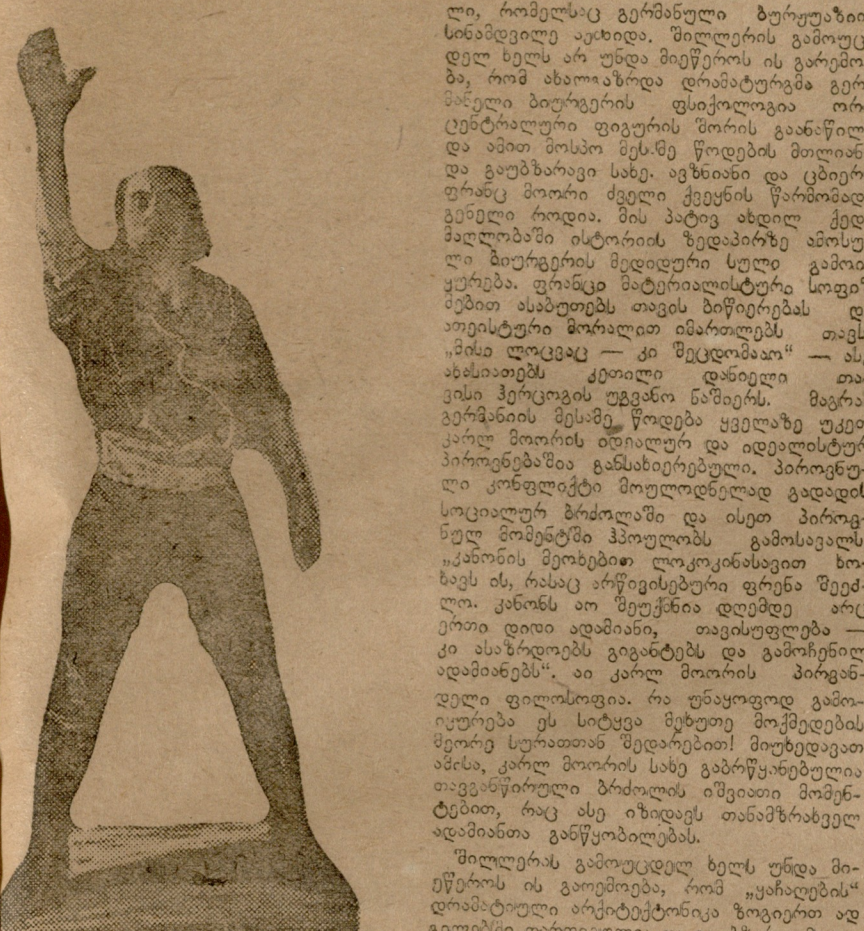 ლი, რომელსაც გერმანული ბურჟუაზიი
სინამდვილე აეხიდა. შილლერის გამოუც
დელ ხელს არ უნდა მიეწეროს ის გარემო
ბა, რომ ახალგაზრდა დრამატურგმა გერ
მანელი ბიურგერის ფსიქოლოგია ორ
ცენტრალური ფიგურის შორის გაანაწილ
და ამით მოსპო მესამე წოდების მთლიან
და გაუბზარავი სახე. ავზნიანი და ცბიერ
ფრანც მოორი ძველი ქვეყნის წარმომად
გენელი როდია. მის პატივ ახდილ ქედ
მაღლობაში ისტორიის ზედაპირზე ამოსუ
ლი ბიურგერის მედიდური სული გამოი
ყურება. ფრანცი მატერიალისტური სოფიზ
მებით ასაბუთებს თავის ბიწიერებას დ
ათეისტური მორალით იმართლებს თავს
„მისი ლოცვაც — კი შეცდომააო“ — ას
ახასიათებს კეთილი დანიელი თა
ვისი ჰერცოგის უგვანო ნაშიერს. მაგრა
გერმანიის მესამე წოდება ყველაზე უკეთ
კარლ მოორის იდეალურ და იდეალისტურ
პიროვნებაშია განსახიერებული. პიროვნუ-
ლი კონფლიქტი მოულოდნელად გადადის
სოციალურ ბრძოლაში და ისეთ პიროვ-
ნულ მომენტში ჰპოულობს გამოსავალს
„კანონის მეოხებით ლოკოკინასავით ხო-
ხავს ის, რასაც არწივისებური ფრენა შეეძ-
ლო. კანონს არ შეუქმნია დღემდე არც
ერთი დიდი ადამიანი, თავისუფლება —
კი ასაზრდოებს გიგანტებს და გამოჩენილ
ადამიანებს“. აი კარლ მოორის პირვან-
დელი ფილოსოფია. რა უნაყოფოდ გამო-
იყურება ეს სიტყვა მეხუთე მოქმედების
მეორე სურათთან შედარებით! მიუხედავათ
ამისა, კარლ მოორის სახე გაბრწყინებულია
თავგანწირული ბრძოლის იშვიათი მომენ-
ტებით, რაც ასე იზიდავს თანამზრახველ
ადამიანთა განწყობილებას.
შილლერის გამოუცდელ ხელს უნდა მი-
ეწეროს ის გარემოება, რომ „ყაჩაღების“
დრამატიული არქიტექტონიკა ზოგიერთ ად